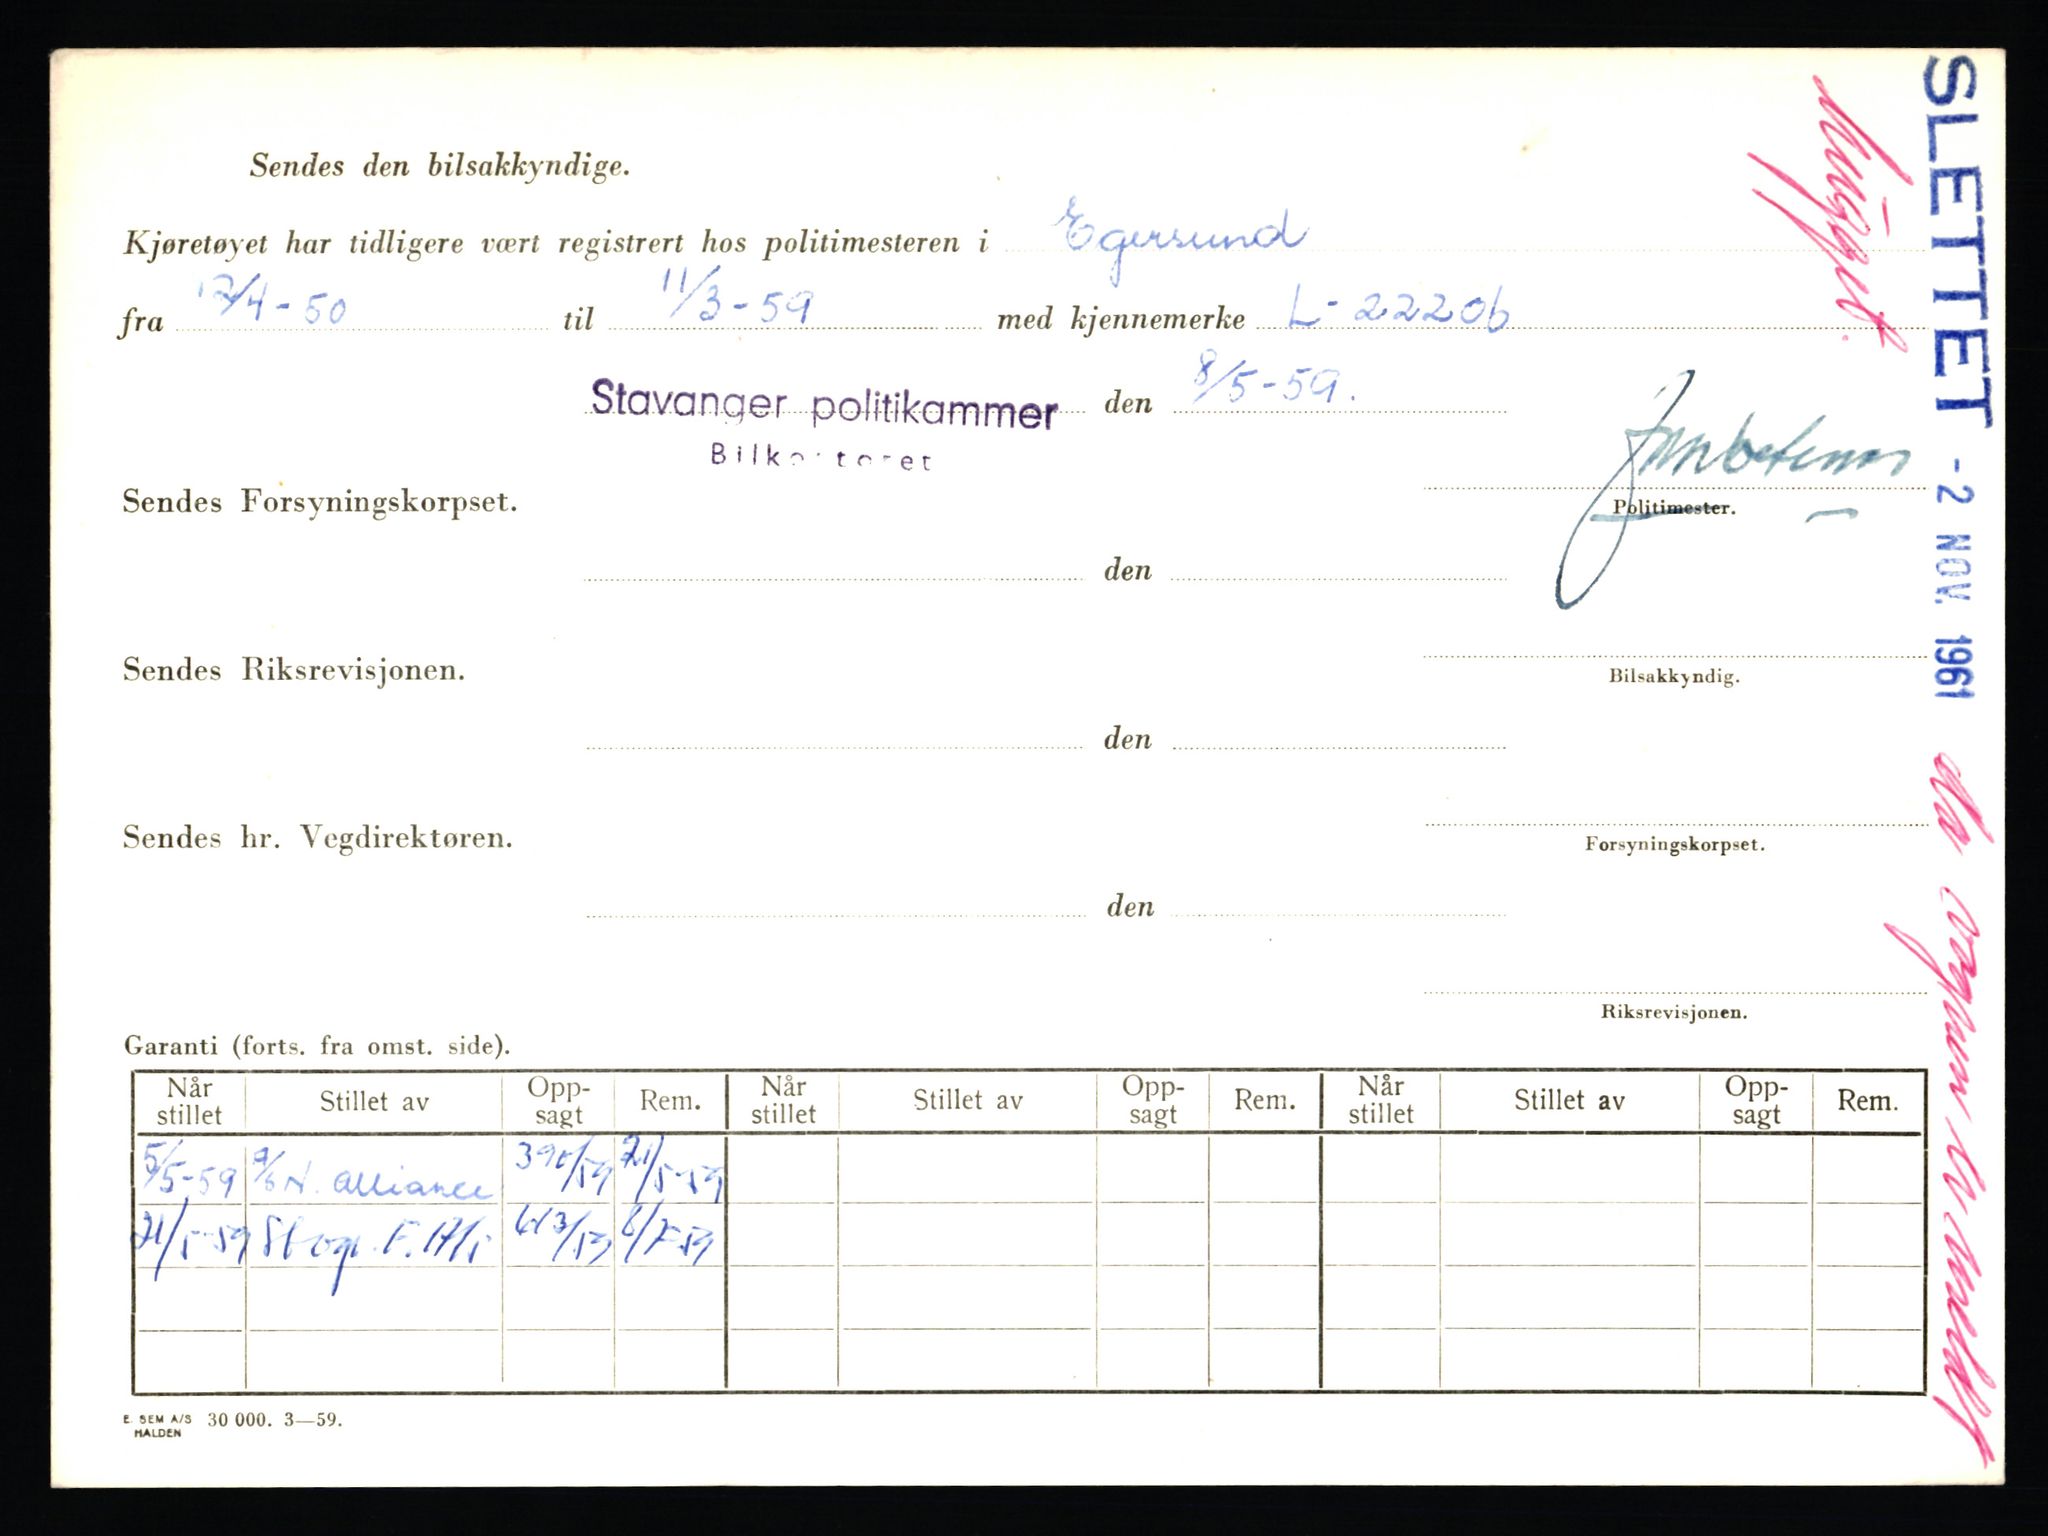 Sendes den bilsakkyndige.
Kjøretøyet har tidligere vært registrert hos politimesteren i Egersund
fra 12/4-50 til 11/3-59 med kjennemerke L-22206
Stavanger politikammer den 8/5-59.
Bilkontoret
Sendes Forsyningskorpset.
Politimester.
den
Sendes Riksrevisjonen.
Bilsakkyndig.
den
Sendes hr. Vegdirektøren.
Forsyningskorpset.
den
Riksrevisjonen.
Garanti (forts. fra omst. side).
Når stillet Stillet av Opp-sagt Rem. Når stillet Stillet av Opp-sagt Rem. Når stillet Stillet av Opp-sagt Rem.
5/5-59 N. alliance 21/5-59
21/5-59
E. SEM A/S 30 000. 3—59.
HALDEN
SLETTET - 2 NOV. 1961